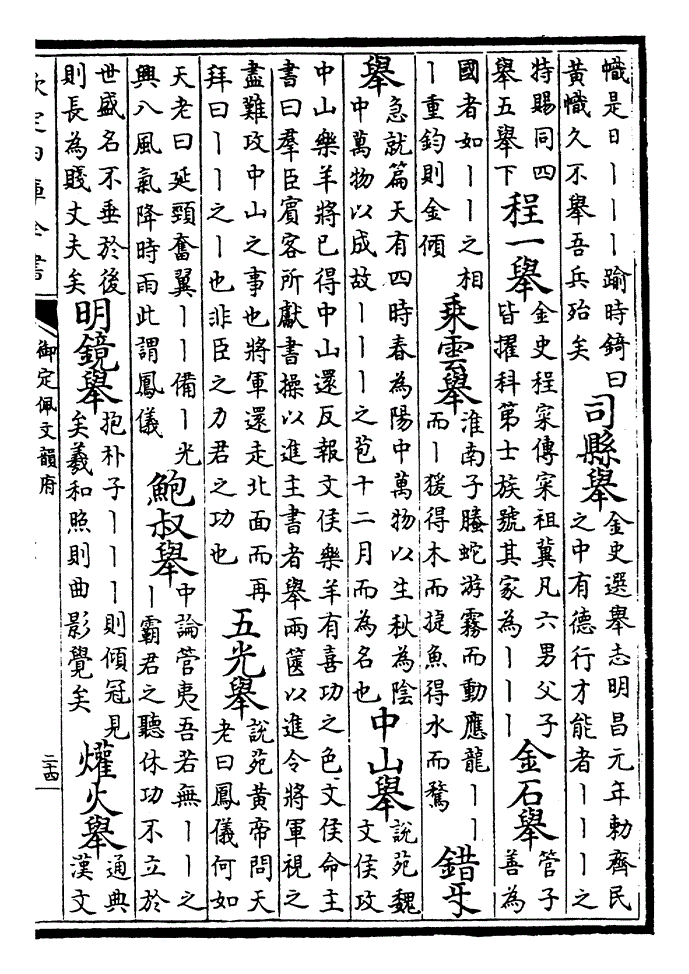 幟是日丨丨丨踰時錡曰
黄幟久不舉吾兵殆矣
司縣舉
金史選舉志明昌元年勅齊民
之中有德行才能者丨丨丨之
特賜同四
舉五舉下
程一舉
金史程寀傳寀祖冀凡六男父子
皆擢科第士族號其家為丨丨丨
金石舉
管子
善為
國者如丨丨之相
丨重鈞則金傾
乘雲舉
淮南子螣蛇游霧而動應龍丨丨
而丨猨得木而捷魚得水而騖
錯㸦
舉
急就篇天有四時春為陽中萬物以生秋為陰
中萬物以成故丨丨丨之苞十二月而為名也
中山舉
說苑魏
文侯攻
中山樂羊將已得中山還反報文侯樂羊有喜功之色文侯命主
書曰羣臣賓客所獻書操以進主書者舉兩篋以進令將軍視之
盡難攻中山之事也將軍還走北面而再
拜曰丨丨之丨也非臣之力君之功也
五光舉
說苑黄帝問天
老曰鳳儀何如
天老曰延頸奮翼丨丨備丨光
興八風氣降時雨此謂鳳儀
鮑叔舉
中論管夷吾若無丨丨之
丨霸君之聽休功不立於
世盛名不垂於後
則長為賤丈夫矣
明鏡舉
抱朴子丨丨丨則傾冠見
矣羲和照則曲影覺矣
爟火舉
通典
漢文
欽定四庫全書
御定佩文韻府
二十四